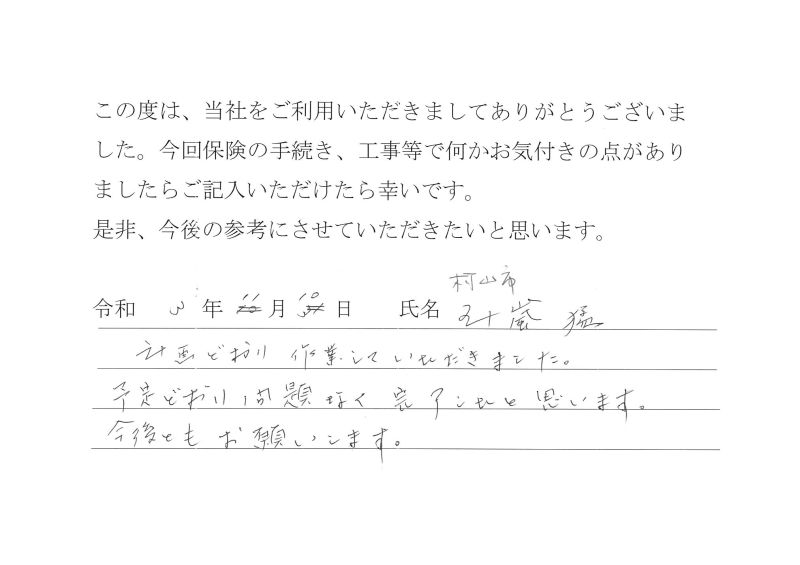 この度は、当社をご利用いただきましてありがとうございま
した。今回保険の手続き、工事等で何かお気付きの点があり
ましたらご記入いただけたら幸いです。
是非、今後の参考にさせていただきたいと思います。
村山市
令和 3年 11月 10日 氏名 五十嵐 猛
計画どおり 作業していただきました。
予定どおり問題なく完了したと思います。
今後ともお願いします。